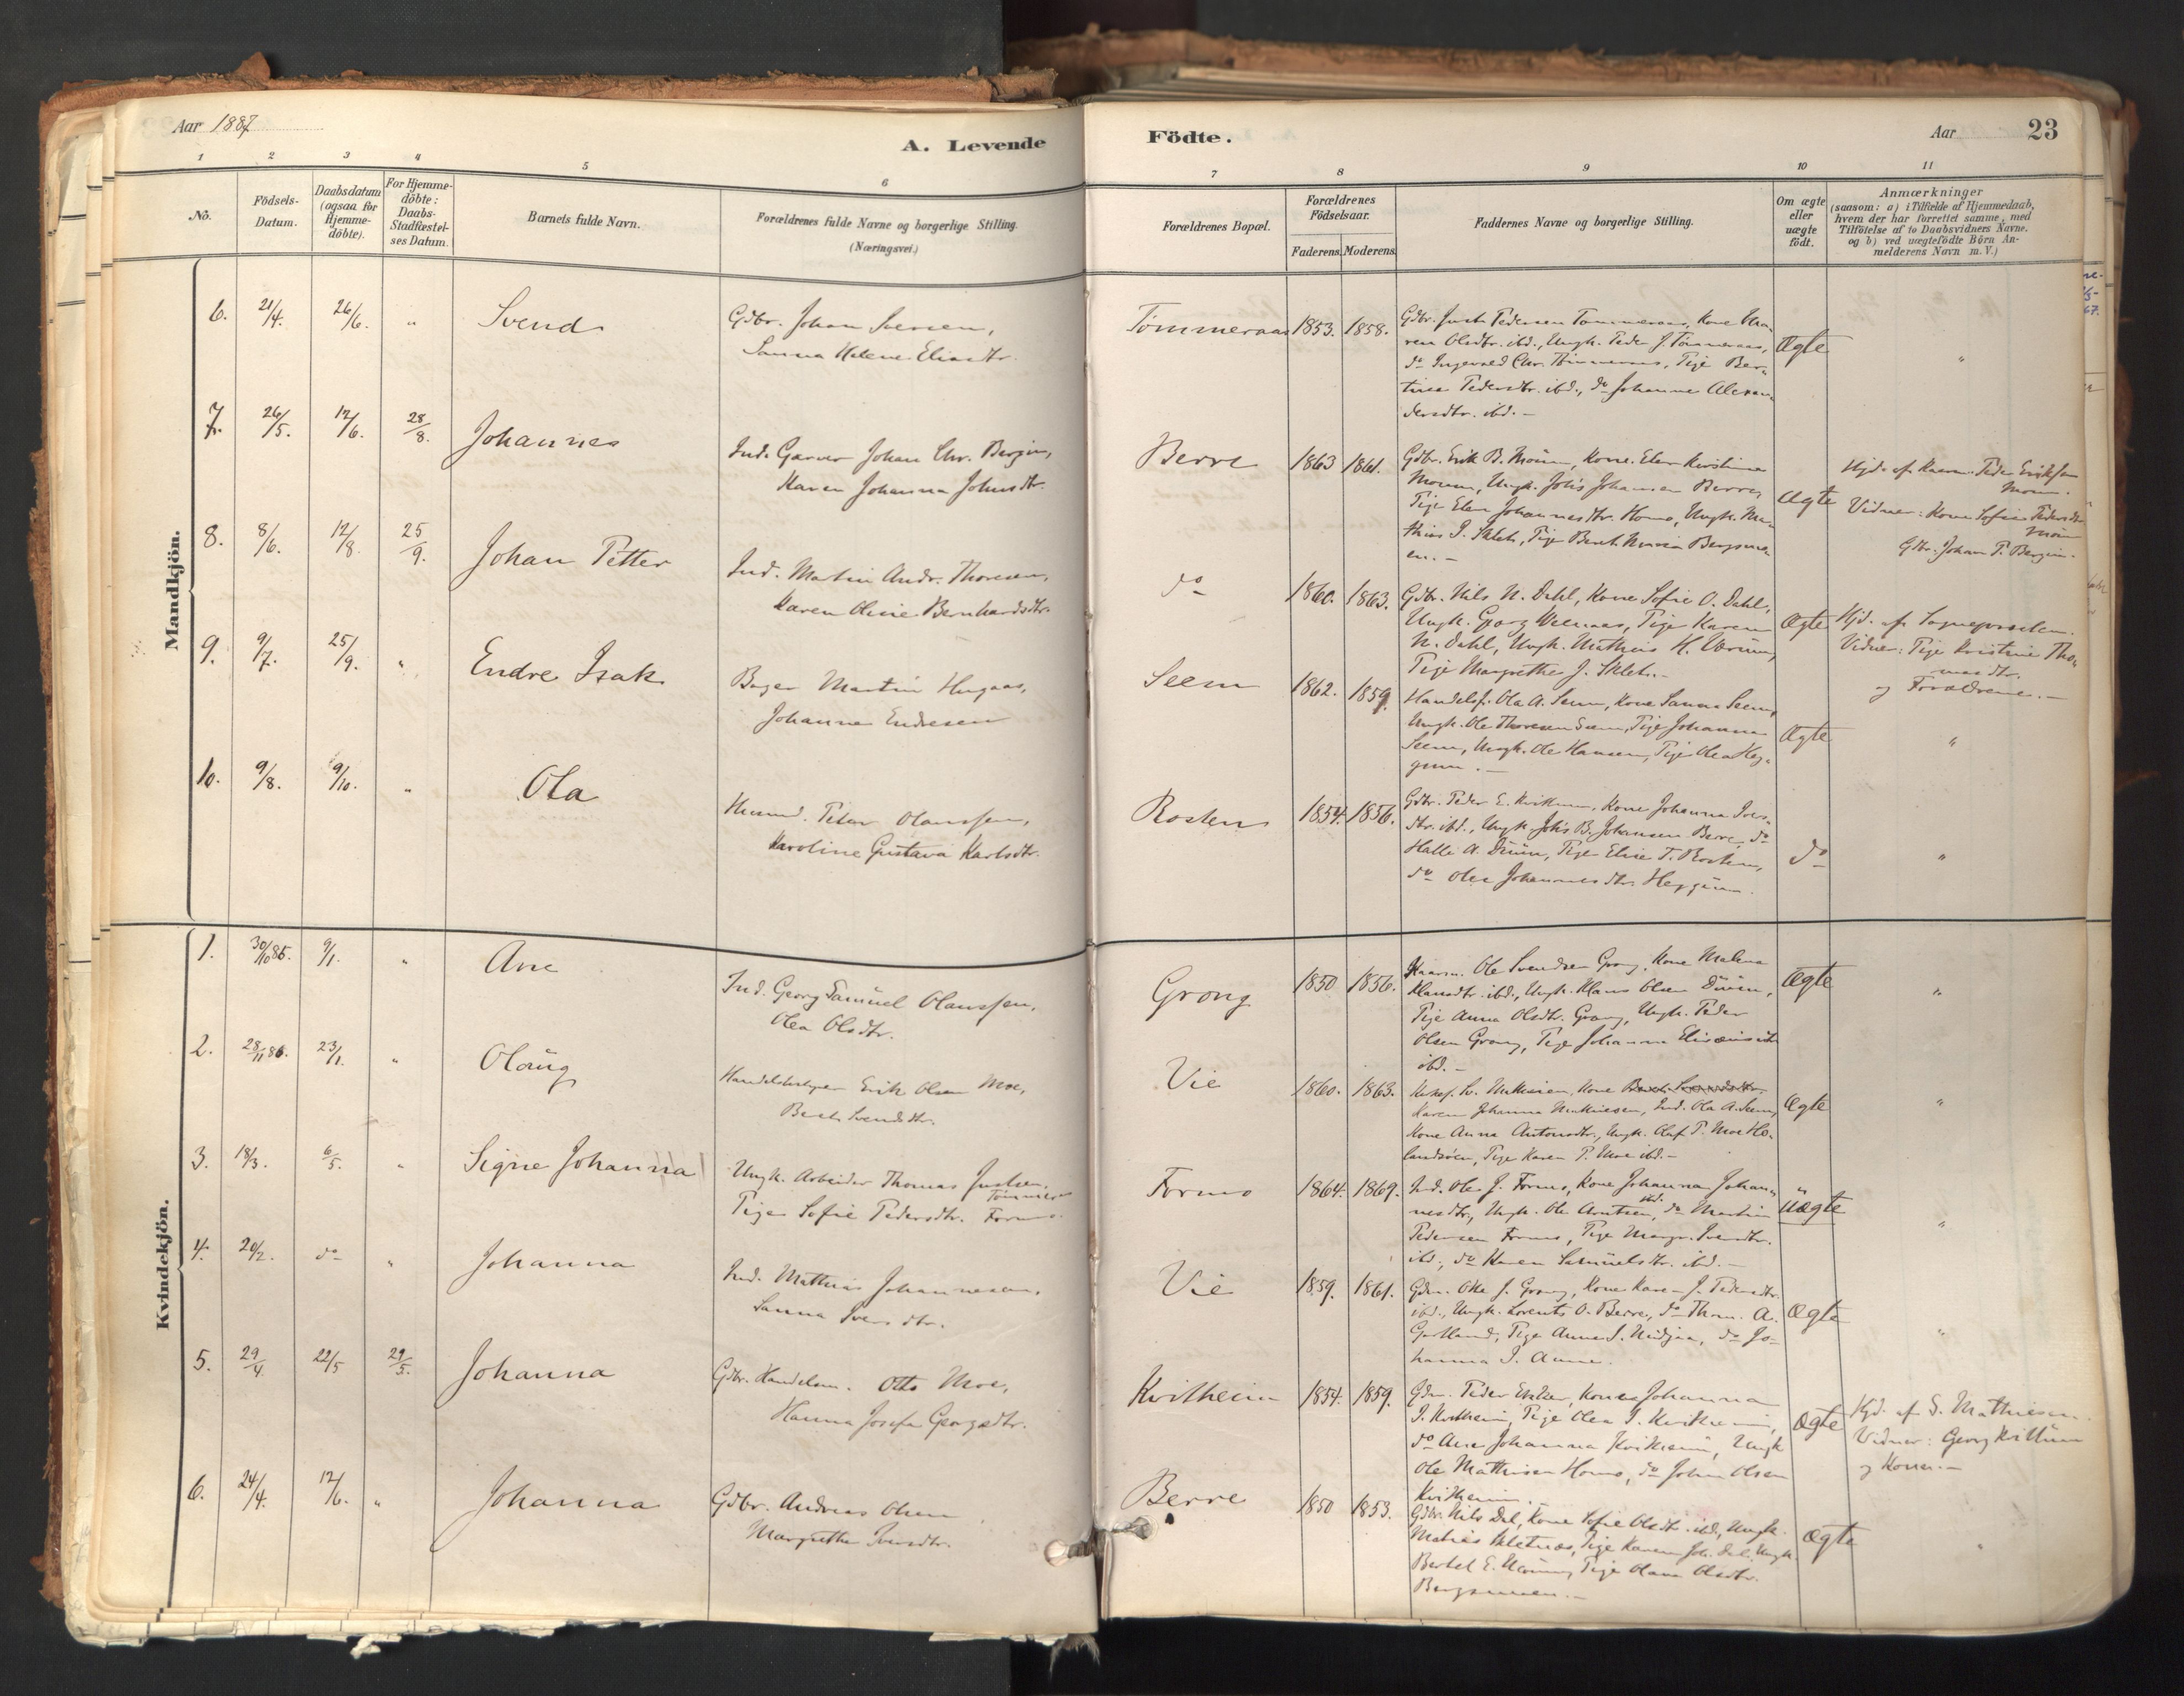 Aar 1887
A. Levende
Födte.
Aar
23
1 2 3 4 5 6 7 8 9 10 11
No.
Födsels-
Datum.
Daabsdatum
(ogsaa for
Hjemme-
döbte).
For Hjemme-
döbte:
Daabs-
Stadfæstel-
ses Datum.
Barnets fulde Navn.
Forældrenes fulde Navne og borgerlige Stilling.
(Næringsvei.)
Forældrenes Bopæl.
Forældrenes
Födselsaar.
Faderens. Moderens.
Faddernes Navne og borgerlige Stilling.
Om ægte
eller
uægte
födt.
Anmærkninger
(saasom: a) i Tilfælde af Hjemmedaab,
hvem der har forrettet samme, med
Tilföielse af to Daabsvidners Navne.
og b) ved uægtefödte Börn An-
melderens Navn m. V.)
Mandkjön.
6. 21/4. 26/6. " Svend
Gdbr. Johan Iversen,
Sanna Helene Eliasdtr.
Tømmeraas 1853. 1858.
Gdbr. Just Pedersen Tømmeraas, Kone Ma-
ren Olsdtr. ibd., Ungk. Peder J. Tømmeraas,
do Ingevald Chr. Tømmeraas, Pige Ber-
tine Pedersdtr. ibd., do Johanne Alexan-
dersdtr. ibd. -
Ægte "
7. 26/5. 12/6. 28/8. Johannes
Ind. Garver Johan Chr. Bergin,
Karen Johanna Johnsdtr.
Berre 1863 1861.
Gdbr. Erik B. Moum, Kone Elen Kirstine
Moum, Ungk. Johs Johansen Berre,
Pige Elen Johannesdtr. Homo, Ungk. Ma-
thias I. Sklet, Pige Beret Maria Bergsmo-
en. -
Ægte
Hjd. af Kaarm. Peder Eriksen
Moum.
Vidner: Kone Sofie Pedersdtr
Moum
Gdbr. Johan P. Bergin.
8. 8/6. 12/8. 25/9. Johan Petter
Ind. Martin Andr. Thoresen,
Karen Oline Bernhardsdtr.
do 1860. 1863.
Gdbr. Nils N. Dahl, Kone Sofie O. Dahl,
Ungk. Georg Veenaas, Pige Karen
N. Dahl, Ungk. Mathias H. Værum,
Pige Margrethe J. Sklet. -
Ægte
Hjd. af Sognepresten.
Vidner: Pige Kristine Tho-
masdtr.
og Forældrene. -
9. 9/7. 25/9. " Endre Isak
Bager Martin Hugaas,
Johanna Endresen
Seem 1862. 1859.
Handelsf. Ola A. Seem, Kone Sanna Seem,
Ungk. Ole Thoresen Seem, Pige Johanna
Seem, Ungk. Ole Hansen, Pige Olea Heg-
gum. -
Ægte "
10. 9/8. 9/10. " Ola
Husmd. Peter Olaussen,
Karoline Gustava Karlsdtr.
Rosten 1854. 1856.
Gdbr. Peder E. Kvithem, Kone Johanna Ivers-
dtr. ibd., Ungk. Johs B. Johansen Berre, do
Halle A. Duun, Pige Elise T. Rosten,
do Olea Johannesdtr. Heggum.
do "
Kvindekjön.
1. 30/10 86. 9/1. " Ane
Ind. Georg Samuel Olaussen,
Olea Olsdtr.
Grong 1850 1856.
Kaarm. Ole Svendsen Grong, Kone Malena
Klausdtr. ibd., Ungk. Klaus Olsen Duun,
Pige Anna Olsdtr. Grong, Ungk. Peder
Olsen Grong, Pige Johanna Elisæusdtr
ibd. -
Ægte "
2. 28/11 86. 23/1. " Olaug
Handelsbestyrer Erik Olsen Moe,
Beret Svendsdtr.
Vie 1860. 1863.
Karen Johanna Mathiesen, Ind. Ola A. Seem,
Kone Anna Antonsdtr., Ungk. Oluf P. Moe Ho-
landsöen, Pige Karen P. Moe ibd. -
Ægte "
3. 18/3. 6/5. " Signe Johanna
Ungk. Arbeider Thomas Justsen
Tømmeraas
Pige Sofie Pedersdtr. Formo.
Formo 1864. 1869.
Ind. Ole J. Formo, Kone Johanna Johan-
nesdtr. ibd., Ungk. Ole Arntsen, do Martin
Pedersen Formo, Pige Margr. Iversdtr.
ibd., do Karen Samuelsdtr. ibd. -
Uægte "
4. 20/2. do " Johanna
Ind. Mathias Johannesen,
Sanna Iversdtr.
Vie 1859. 1861.
Gdm. Otto J. Grong, Kone Karen J. Pedersdtr.
ibd., Ungk. Lorents O. Berre, do Thom. A.
Gartland, Pige Anna S. Midjaa, do Jo-
hanna I. Aune.
Ægte "
5. 29/4. 22/5 29/5. Johanna
Gdbr. Handelsm. Otto Moe,
Hanna Josefa Georgsdtr.
Kvithem 1854. 1859.
Gdm. Peder Erikse, Kone Johanna
I. Kvithem, Pige Olea I. Kvithem,
do Ane Johanna Kvithem, Ungk
Ole Mathisen Homo, do Johan Olsen
Kvithem. -
Ægte
Hjd. af S. Mathiesen.
Vidner: Georg Kvithem
og Kone. -
6. 24/4. 12/6. " Johanna
Gdbr. Andreas Olsen
Margrethe Iversdtr.
Berre 1850 1853.
Gdbr. Nils Dal, Kone Sofie Olsdt. ibd., Ungk.
Matias Skletmo, Pige Karen Joh. Dal, Ungk.
Bertel E. Moum, Pige Olava Olsdtr.
Bergsmoen. -
Ægte "